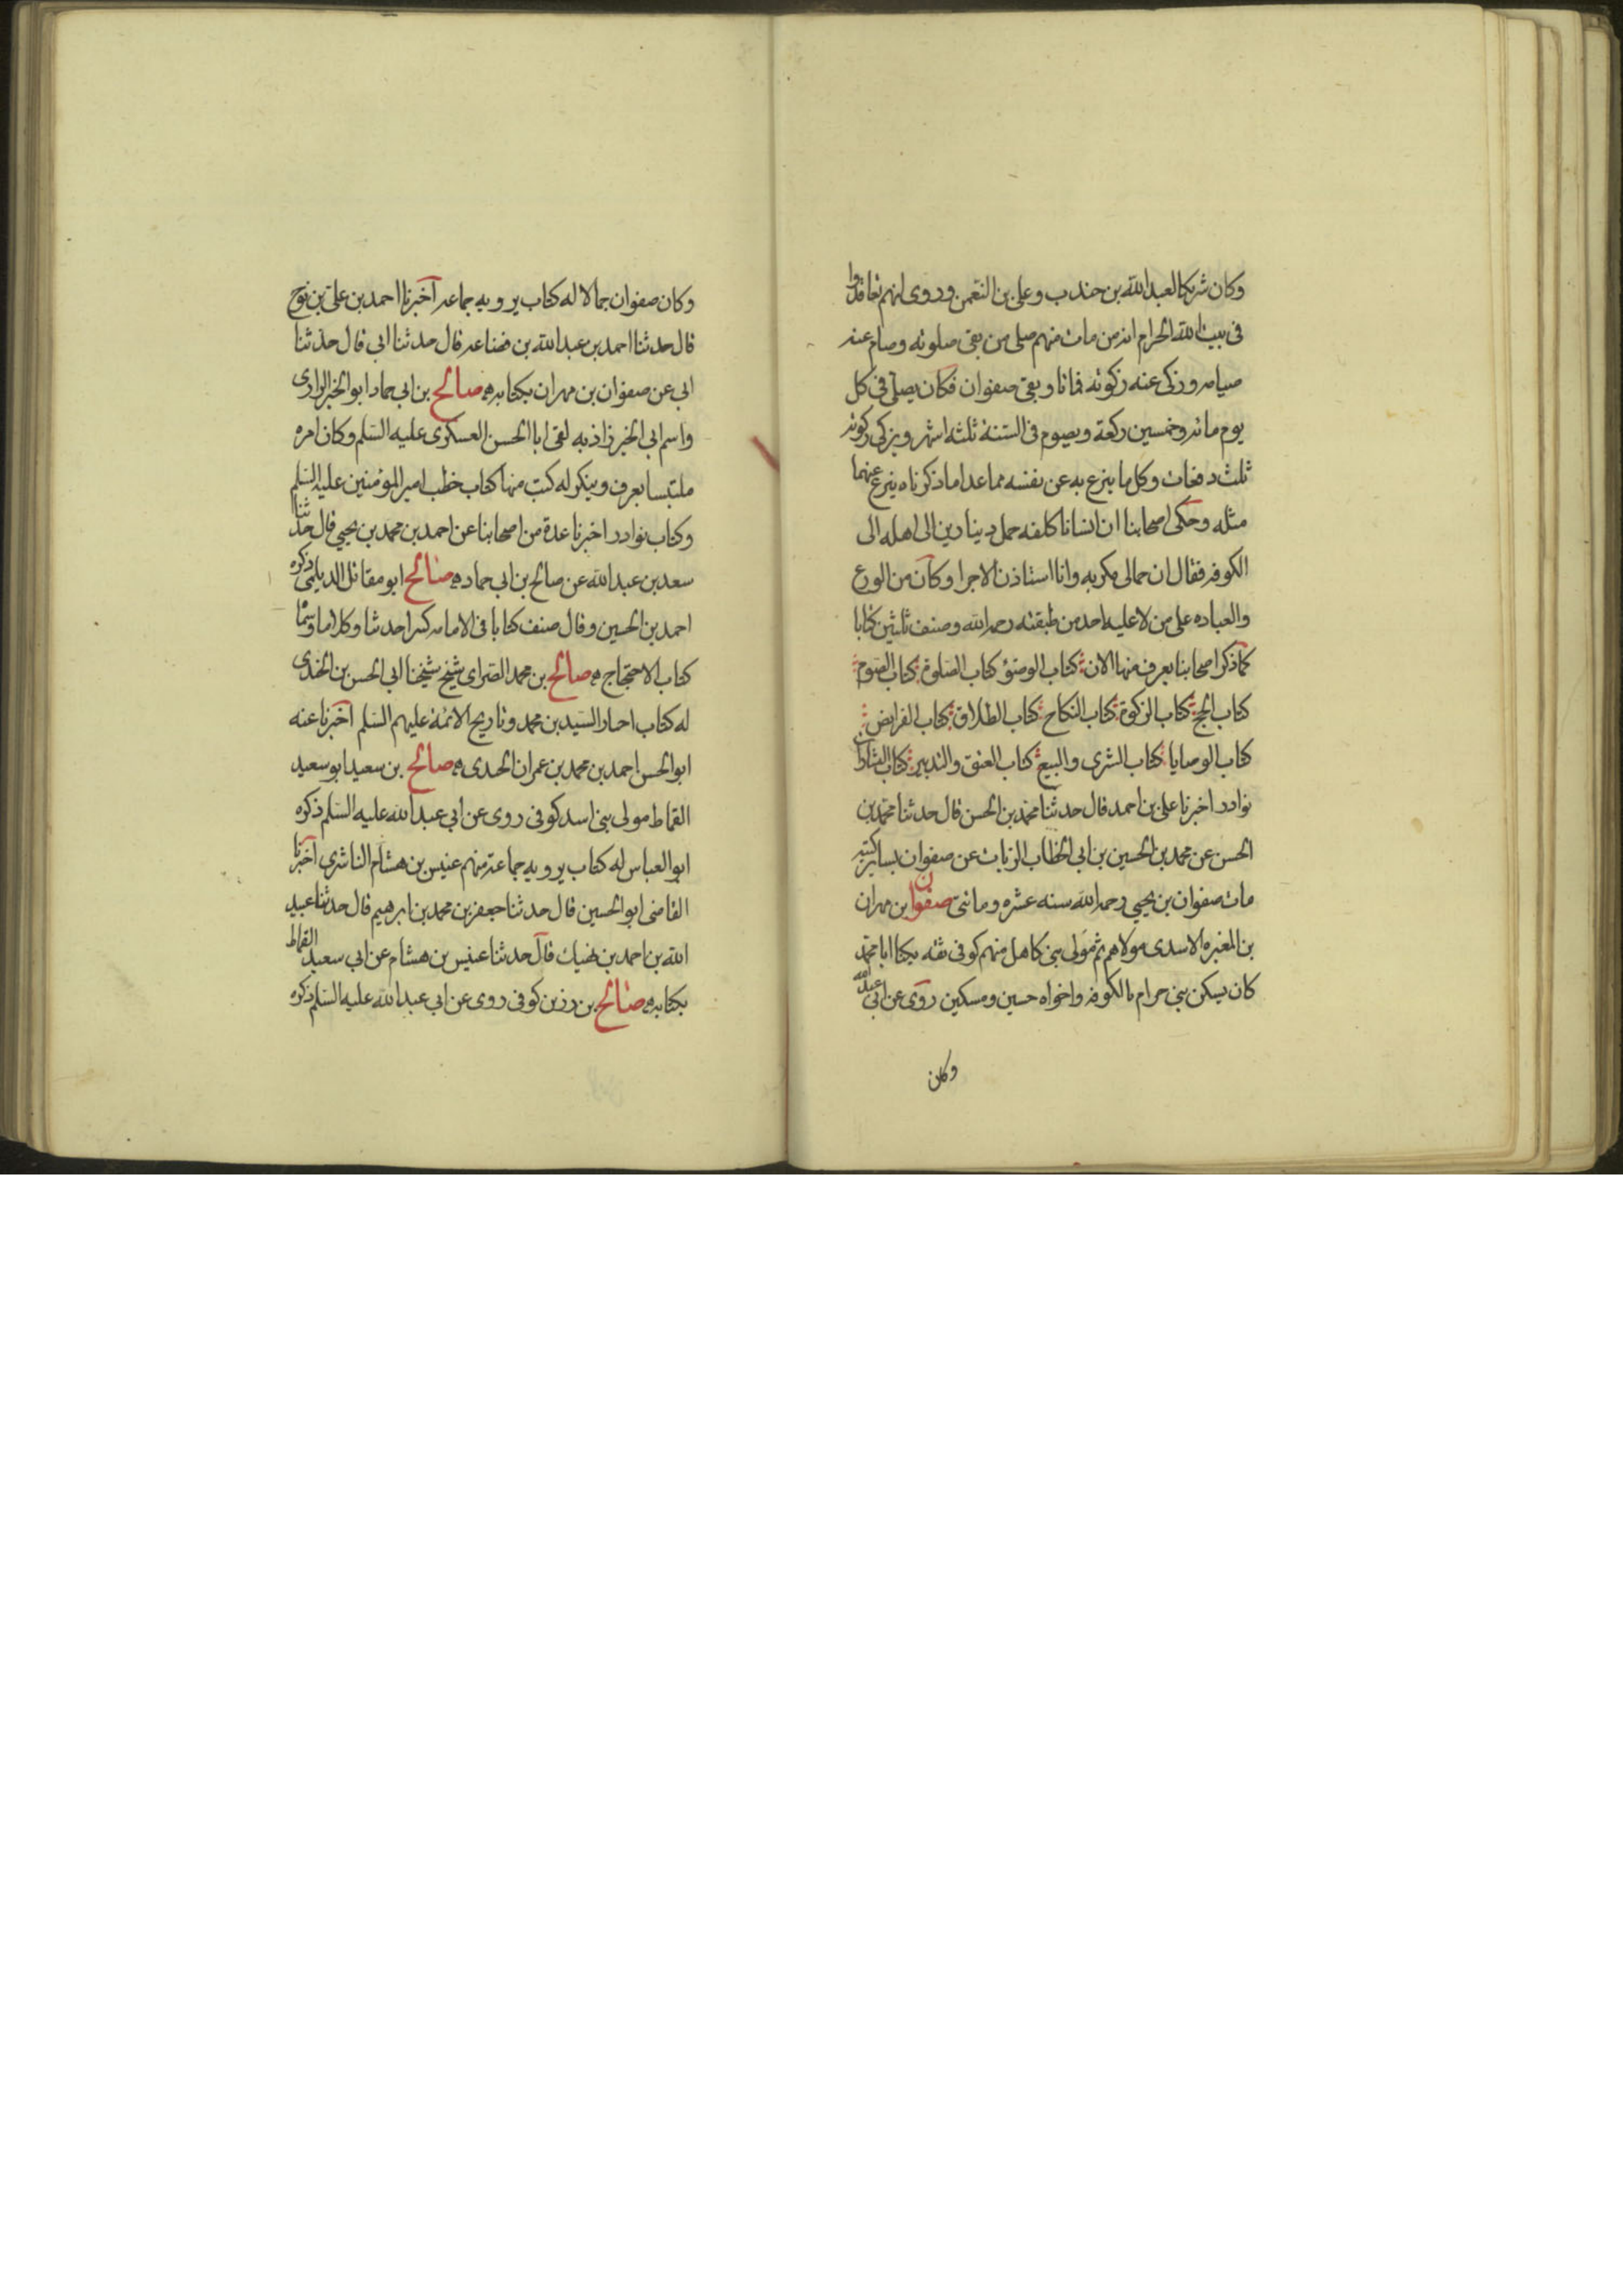 وكان شريكا لعبد الله بن جندب وعلى بن النعمن وروى انهم تعاقدوا
فى بيت الله الحرام انه من مات منهم صلى من بقى صلوته وصام عنه
صيامه وزكى عنه زكوته فماتا وبقى صفوان فكان يصلى فى كل
يوم مائه وخمسين ركعة ويصوم فى السنة ثلثه اشهر ويزكى زكوته
ثلث دفعات وكل ما يتبرع به عن نفسه مما عدا ما ذكرناه يتبرع عنهما
مثله وحكى اصحابنا ان انسانا كلفه حمل دينارين الى اهله الى
الكوفه فقال ان جمالى مكريه وانا استاذن الاجرا وكان من الورع
والعباده على من لا عليه احد من طبقته رحمه الله وصنف ثلثين كتابا
كما ذكر اصحابنا يعرف منها الان كتاب الوضوء كتاب الصلوة كتاب الصوم
كتاب الحج كتاب الزكوة كتاب النكاح كتاب الطلاق كتاب الفرايض
كتاب الوصايا كتاب الشرى والبيع كتاب العتق والتدبير كتاب البشارات
نوادر اخبرنا على بن احمد قال حدثنا محمد بن الحسن قال حدثنا محمد بن
الحسن عن محمد بن الحسين بن ابى الخطاب الزيات عن صفوان بساير كتبه
مات صفوان بن يحيى رحمه الله سنه عشره ومائتى صفوان بن مهران
بن المغيره الاسدى مولاهم ثم مولى بنى كاهل منهم كوفى ثقه يكنا ابا محمد
كان يسكن بنى حرام بالكوفه واخواه حسين ومسكين روى عن ابى عبد الله
وكان
وكان صفوان جمالا له كتاب يرويه جماعه اخبرنا احمد بن على بن نوح
قال حدثنا احمد بن عبد الله بن قضاعه قال حدثنا ابى قال حدثنا
ابى عن صفوان بن مهران بكتابه صالح بن ابى حماد ابو الخير الرازى
واسم ابى الخير زاذبه لقى ابا الحسن العسكرى عليه السلم وكان امره
ملتبسا يعرف وينكر له كتب منها كتاب خطب امير المؤمنين عليه السلم
وكتاب نوادر اخبرنا عدة من اصحابنا عن احمد بن محمد بن يحيى قال حدثنا
سعد بن عبد الله عن صالح بن ابى حماد صالح ابو مقاتل الديلمى ذكره
احمد بن الحسين وقال صنف كتابا فى الامامه كبيرا حدثنا وكلاما وسماه
كتاب الاحتجاج صالح بن محمد الصراى شيخ شيخنا ابى الحسن بن الجندى
له كتاب اخبار السيد بن محمد وتاريخ الائمة عليهم السلم اخبرنا عنه
ابو الحسن احمد بن محمد بن عمران الجندى صالح بن سعيد ابو سعيد
القماط مولى بنى اسد كوفى روى عن ابى عبد الله عليه السلم ذكره
ابو العباس له كتاب يرويه جماعة منهم عنبس بن هشام الناشرى اخبرنا
القاضى ابو الحسين قال حدثنا جعفر بن محمد بن ابرهيم قال حدثنا عبيد
الله بن احمد بن نهيك قال حدثنا عنبس بن هشام عن ابى سعيد القماط
بكتابه صالح بن رزين كوفى روى عن ابى عبد الله عليه السلم ذكره